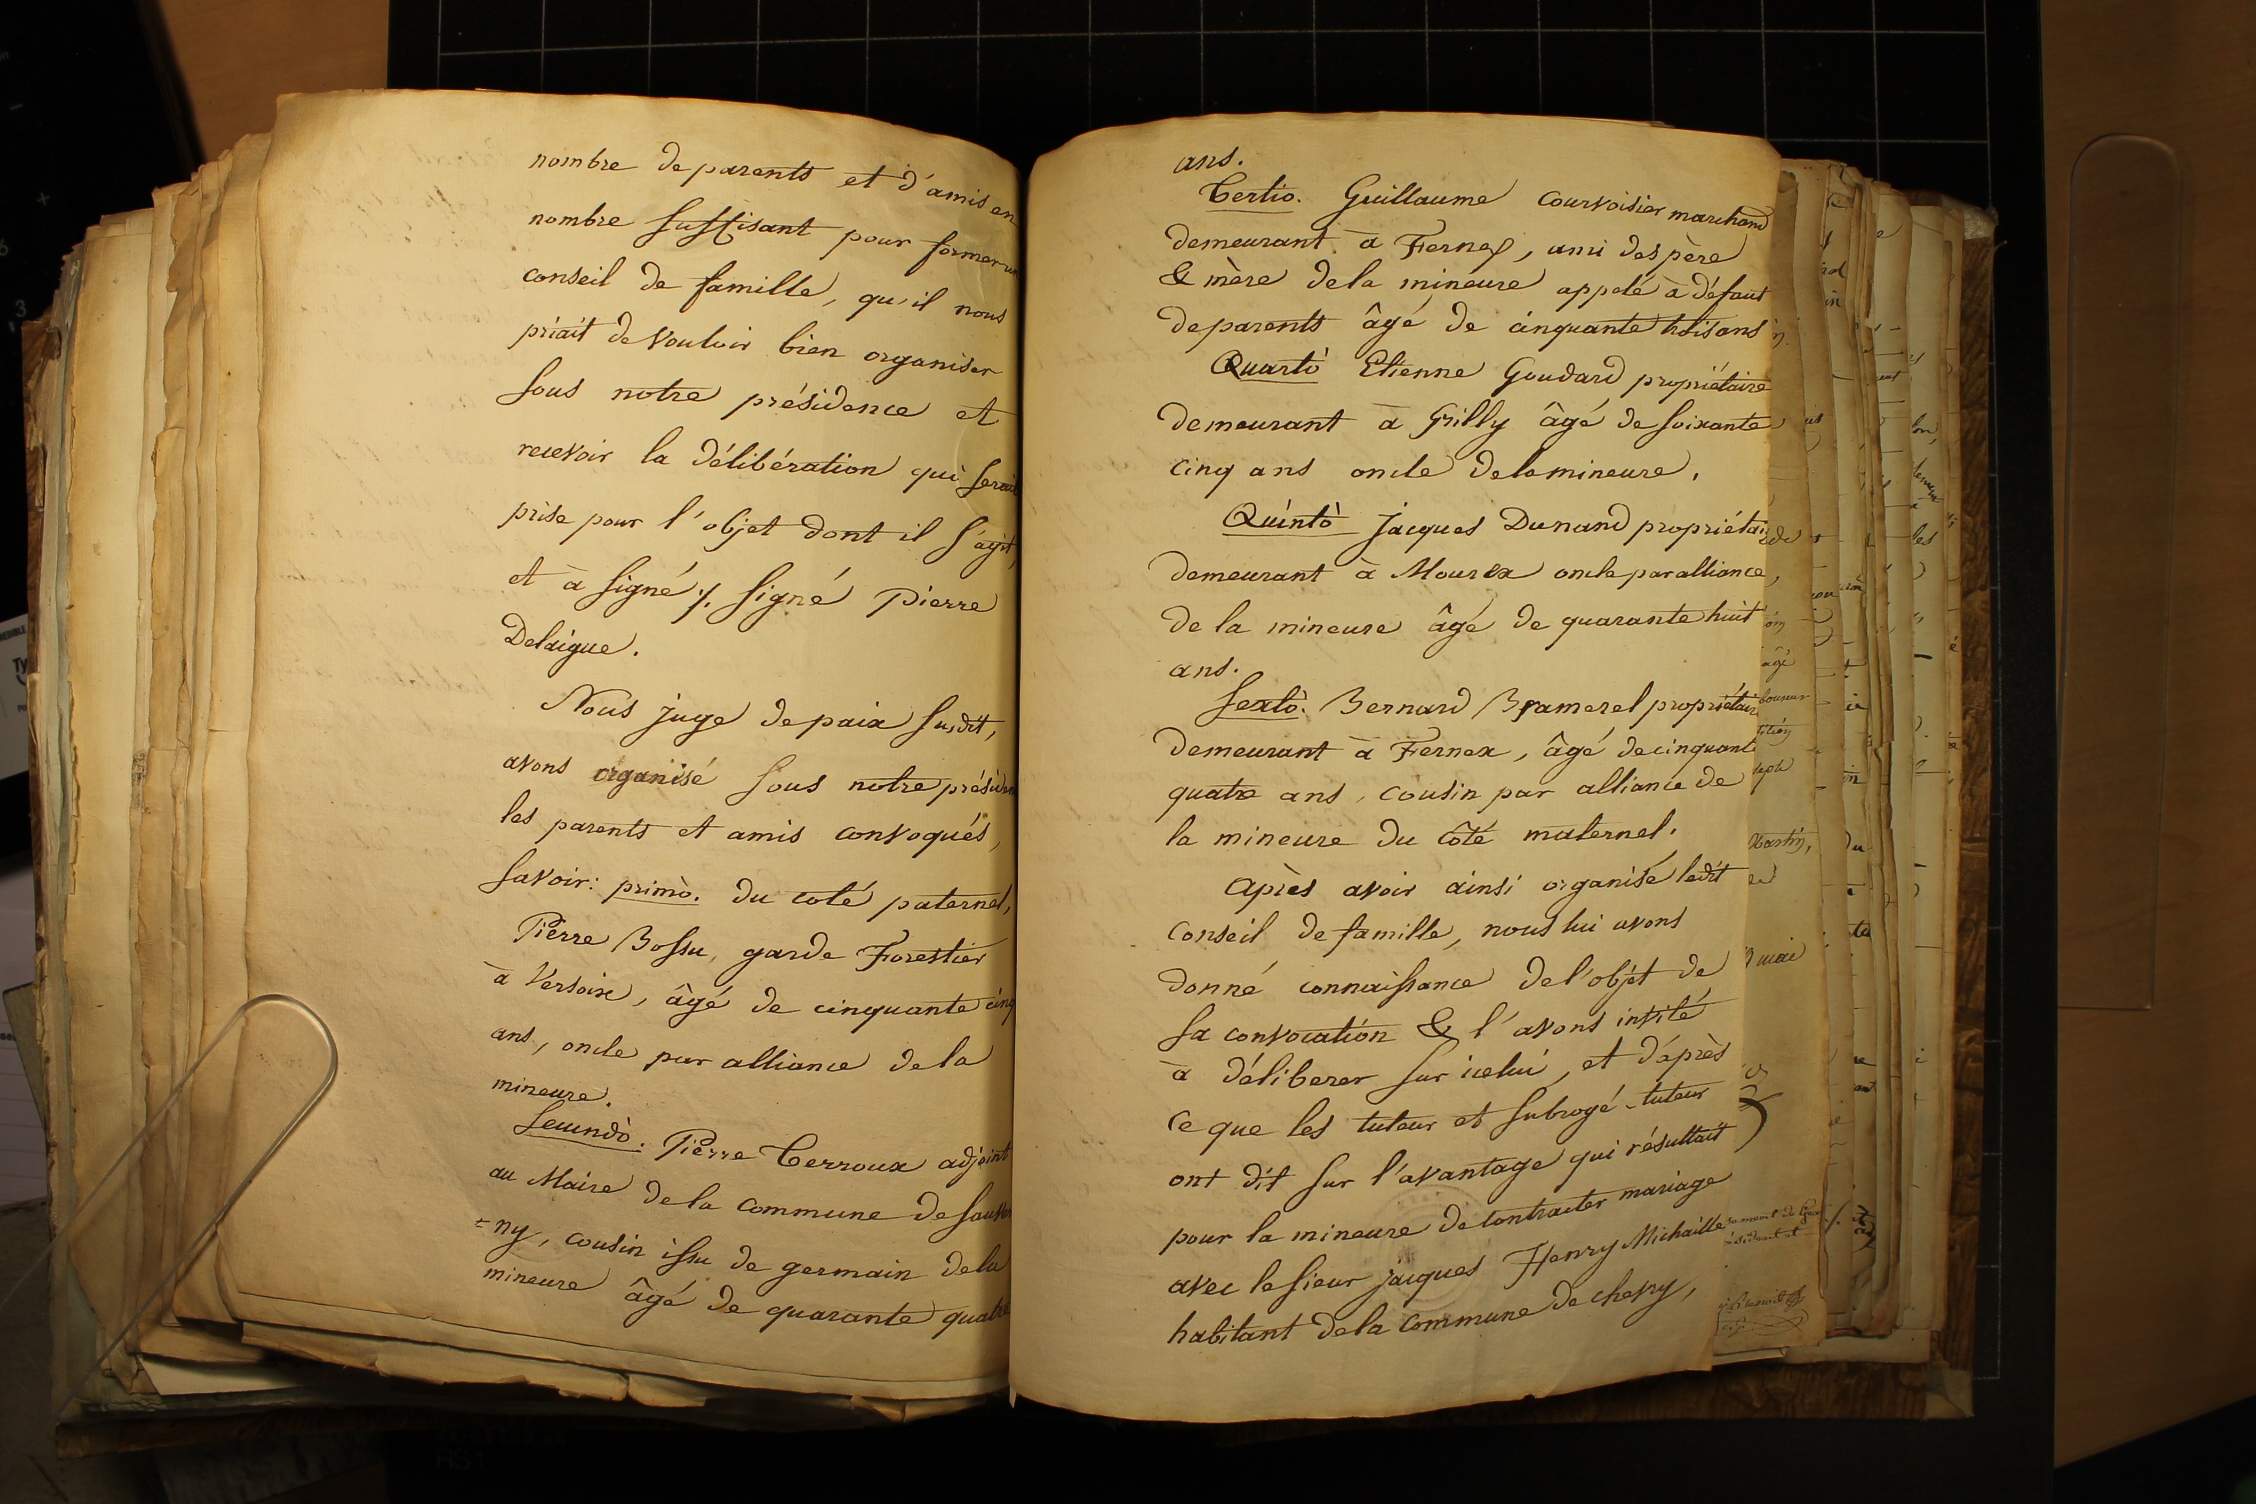 nombre de parents et d'amis en
nombre suffisant pour former un
conseil de famille, qu'il nous
priait de vouloir bien organiser
sous notre présidence et
recevoir la délibération qui serait
prise pour l'objet dont il s'agit,
et à signé ./. signé Pierre
Delaigue.
Nous juge de paix susdit,
avons organisé sous notre présiden
les parents et amis convoqués,
savoir: primò. du coté paternel,
Pierre Bossu, garde Forestier
à Versoix, âgé de cinquante cinq
ans, oncle par alliance de la
mineure.
Secundò. Pierre Terroux adjoint
au Maire de la commune de Sauver
=ny, cousin issu de germain de la
mineure âgé de quarante quatre
ans.
Tertio. Guillaume Courvoisier marchand
demeurant à Fernex, ami des père
& mère de la mineure appelé à défaut
de parents âgé de cinquante trois ans
Quartò Etienne Goudard propriétaire
demeurant à Grilly âgé de soixante
cinq ans oncle de la mineure.
Quintò Jacques Dunand propriétaire
demeurant à Mourex oncle par alliance,
de la mineure âgé de quarante huit
ans.
Sextò. Bernard Bramerel propriétaire
demeurant à Fernex, âgé de cinquante
quatre ans, cousin par alliance de
la mineure du côté maternel.
Après avoir ainsi organisé ledit
conseil de famille, nous lui avons
donné connaissance de l'objet de
sa convocation & l'avons invité
à déliberer sur icelui, et d'après
ce que les tuteur et subrogé-tuteur
ont dit sur l'avantage qui résultait
pour la mineure de contracter mariage
avec le sieur Jacques Henry Michaille
habitant de la commune de chevry,